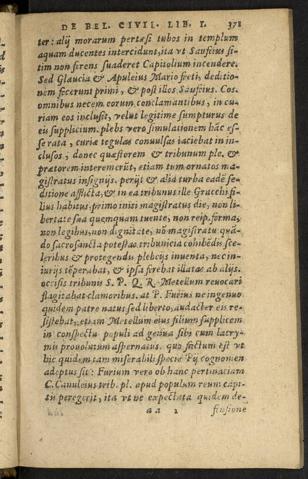 DE BEL. CIVIL. LIB. I. 378
ter: alij morarum pertæsi tubos in templum
aquam ducentes intercidunt, ita vt Saufeius si-
tim non ferens suaderet Capitolium incendere.
Sed Glaucia & Apuleius Mario freti, deditio-
nem fecerunt primi, & post illos Saufeius. Cos.
omnibus necem eorum conclamantibus, in cu-
riam eos inclusit, velut legitime sumpturus de
eis supplicium. plebs vero simulationem hāc es-
se rata, curiæ tegulas conuulsas iaciebat in in-
clusos, donec quæstorem & tribunum ple. &
prætorem interemerit, etiam tum ornatos ma-
gistratus insignijs. perijt & alia turba eadē se-
ditione afflicta, & in ea tribunus ille Gracchi fi-
lius habitus, primo initi magistratus die, non li-
bertate sua quemquam tuente, non reip. forma,
non legibus, non dignitate, nō magistratu: quā-
do sacrosancta potestas tribunicia cohibēdis sce-
leribus & protegendæ plebi inuenta, nec in-
iurijs tēperabat, & ipsa ferebat illatas ab alijs.
occisis tribunis S. P. Q. R. Metellum reuocari
flagitabat clamoribus. at P. Furius ne ingenuo
quidem patre natus sed liberto, audacter eis re-
sistebat, etiam Metellum eius filium supplicem
in conspectu populi ad genua sibi cum lacry-
mis prouolutum aspernatus. quo factum est vt
hic quidem tam miserabili specie Pij cognomen
adeptus sit: Furium vero ob hanc pertinaciam
C. Canuleius trib. pl. apud populum reum capi-
tis peregerit, ita vt ne expectata quidem de-
aa 2 fensione